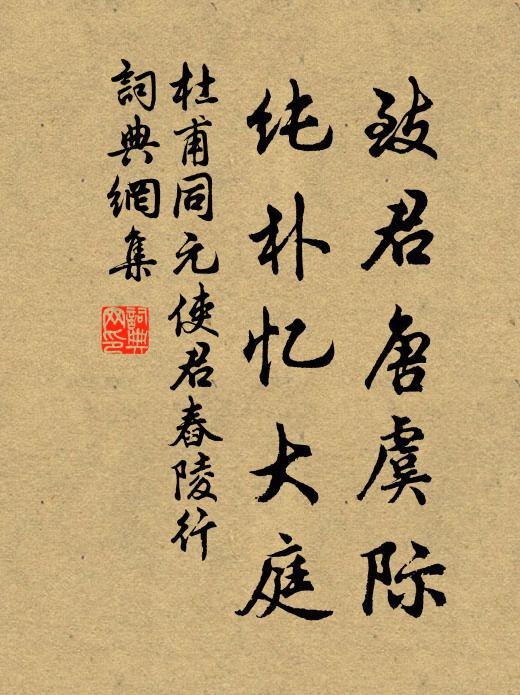 致君唐虞际
纯朴忆大庭
杜甫同元使君舂陵行
詞典網集
詞典网印